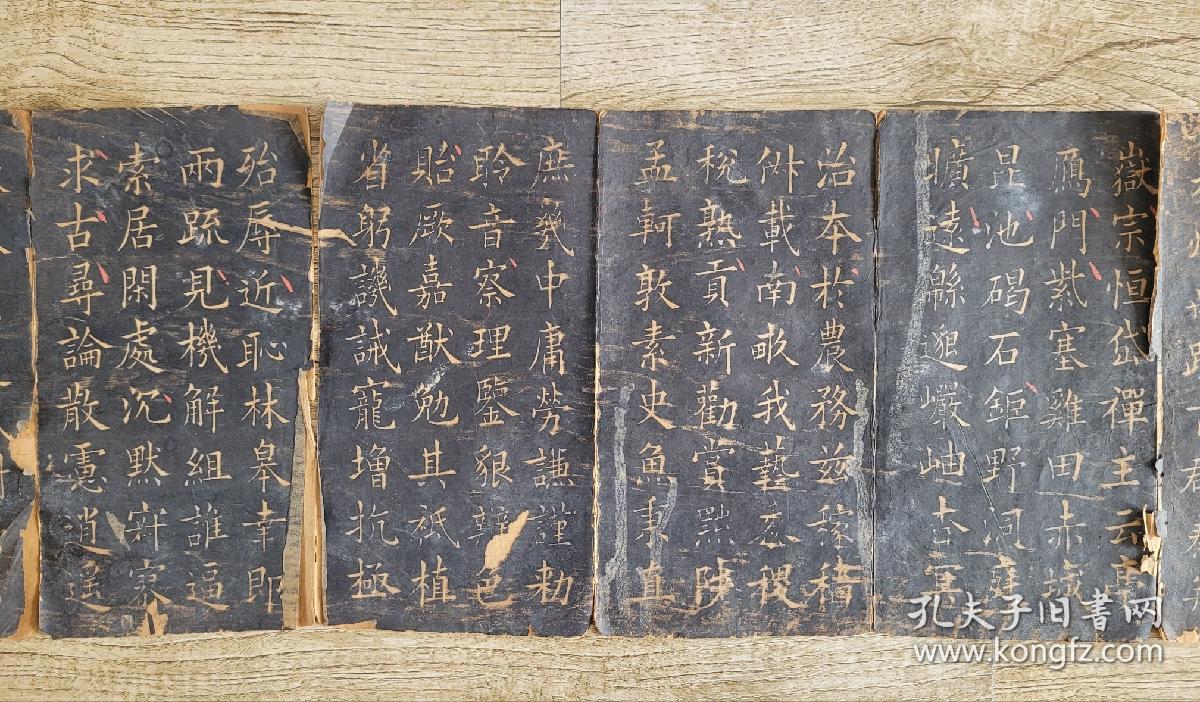 嶽宗恒岱禪主云亭
鴈門紫塞雞田赤城
昆池碣石鉅野洞庭
曠遠緜邈巖岫杳冥
治本於農務茲稼穡
俶載南畝我藝黍稷
稅熟貢新勸賞黜陟
孟軻敦素史魚秉直
庶幾中庸勞謙謹勅
聆音察理鑒貌辨色
貽厥嘉猷勉其祗植
省躬譏誡寵增抗極
殆辱近恥林皋幸即
兩疏見機解組誰逼
索居閑處沉默寂寥
求古尋論散慮逍遙
孔夫子旧书网
www.kongfz.com